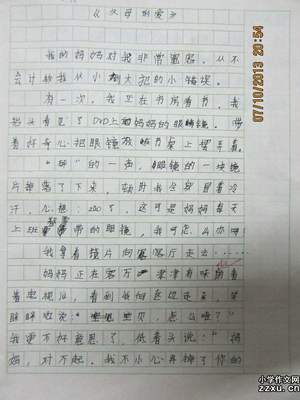 《父母的爱》
我的妈妈对我非常宽容，从不
会计较我从小到大犯的小错误。
有一次，我正在书房看书，我
抬头看见了DVD上的妈妈的眼镜，带
着好奇心把眼镜放在书架上
“啪”的一声，眼镜的一块镜
片掉落了下来，我冒着冷
汗，心想：这可是妈妈每天
上班带的眼镜，我可怎么办啊
我拿着镜片向客厅走去……
妈妈正在客厅津津有味的看
着电视，看到我向这边走来，笑
眯眯地说：“宝贝，怎么啦？”
我更不好意思了，低着头说：“妈
妈，对不起，我不小心弄掉了你的
07/10/2013 20:54
小学作文网
zzxu.cn